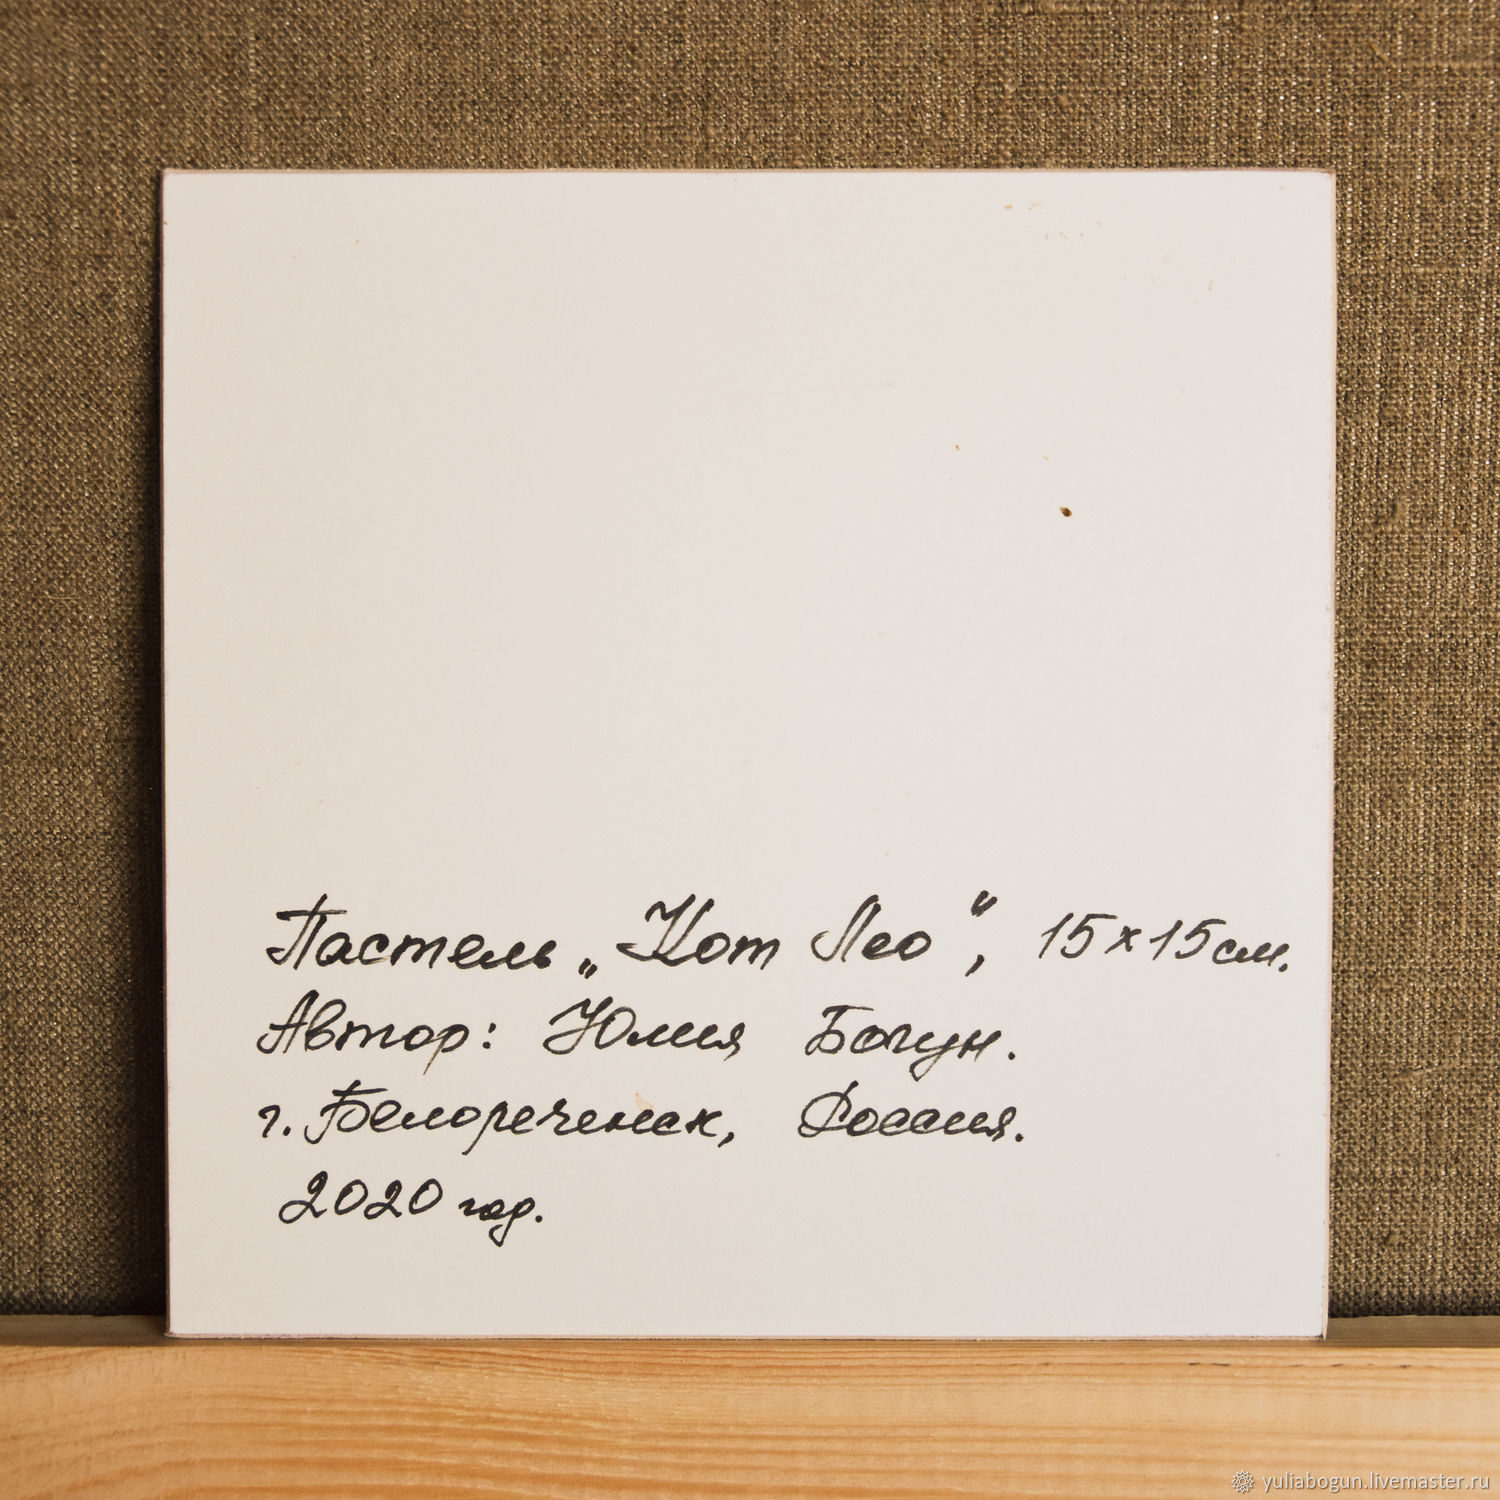 Пастель „Кот Лео“, 15х15см.
Автор: Юлия Богун.
г. Белореченск, Россия.
2020 год.
yuliabogun.livemaster.ru